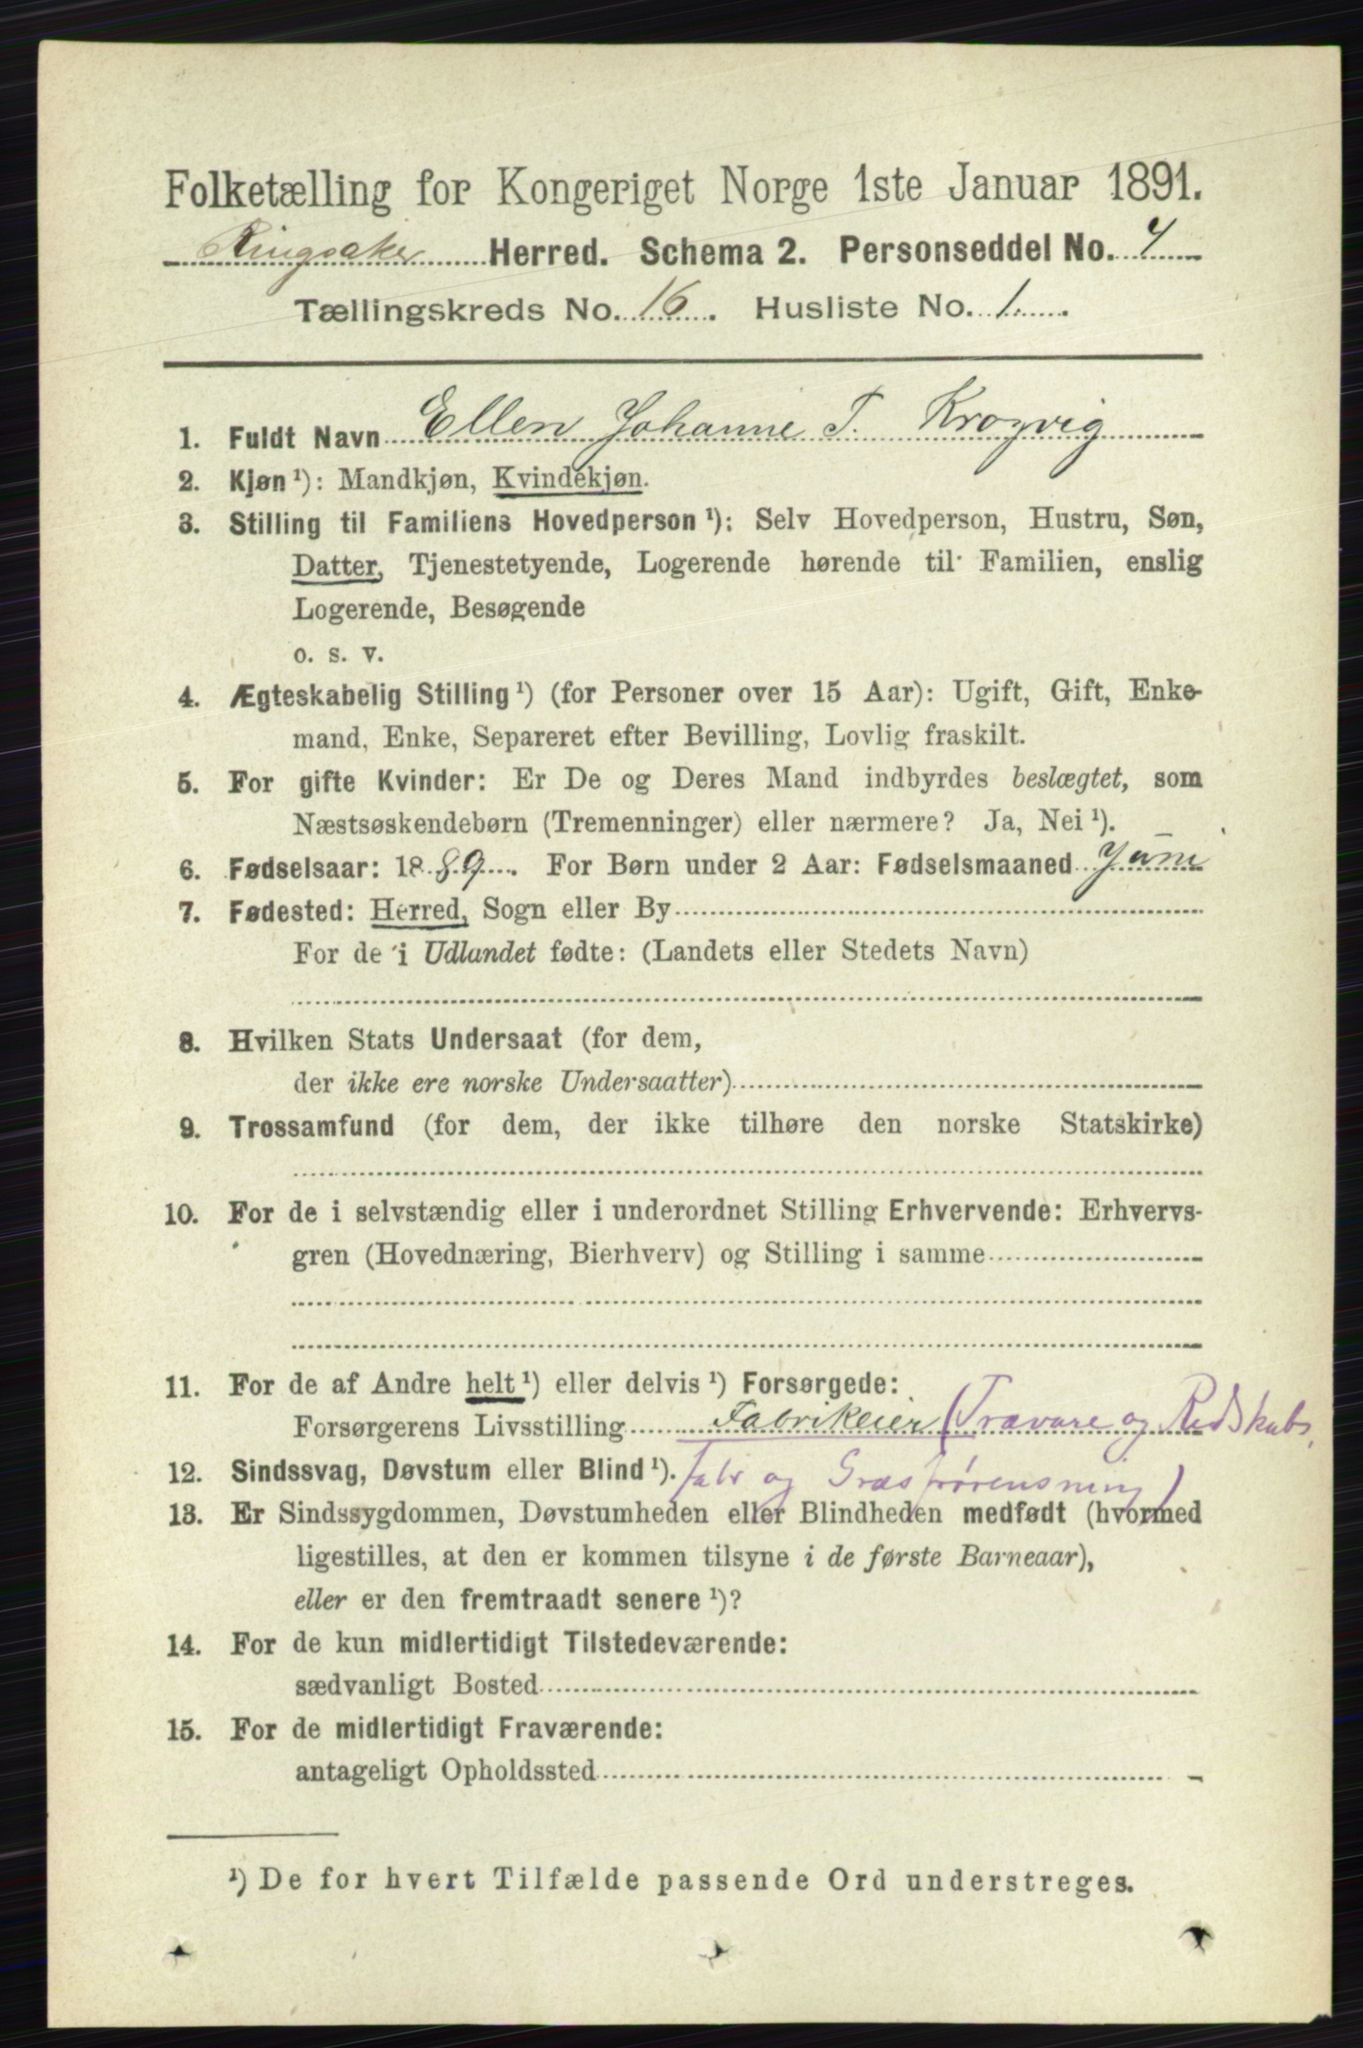 Folketælling for Kongeriget Norge 1ste Januar 1891.
Ringsaker Herred. Schema 2. Personseddel No. 4
Tællingskreds No. 16. Husliste No. 1.
1. Fuldt Navn Ellen Johanne T. Krogvig
2. Kjøn ¹): Mandkjøn, Kvindekjøn.
3. Stilling til Familiens Hovedperson ¹): Selv Hovedperson, Hustru, Søn,
Datter, Tjenestetyende, Logerende hørende til Familien, enslig
Logerende, Besøgende
o. s. v.
4. Ægteskabelig Stilling ¹) (for Personer over 15 Aar): Ugift, Gift, Enke-
mand, Enke, Separeret efter Bevilling, Lovlig fraskilt.
5. For gifte Kvinder: Er De og Deres Mand indbyrdes beslægtet, som
Næstsøskendebørn (Tremenninger) eller nærmere? Ja, Nei ¹).
6. Fødselsaar: 1889. For Børn under 2 Aar: Fødselsmaaned
7. Fødested: Herred, Sogn eller By
For de i Udlandet fødte: (Landets eller Stedets Navn)
8. Hvilken Stats Undersaat (for dem,
der ikke ere norske Undersaatter)
9. Trossamfund (for dem, der ikke tilhøre den norske Statskirke)
10. For de i selvstændig eller i underordnet Stilling Erhvervende: Erhvervs-
gren (Hovednæring, Bierhverv) og Stilling i samme
11. For de af Andre helt ¹) eller delvis ¹) Forsørgede:
Forsørgerens Livsstilling Fabrikeier (Trævare og Redskabs
12. Sindssvag, Døvstum eller Blind ¹). fabr og Græsfrørensning)
13. Er Sindssygdommen, Døvstumheden eller Blindheden medfødt (hvormed
ligestilles, at den er kommen tilsyne i de første Barneaar),
eller er den fremtraadt senere ¹)?
14. For de kun midlertidigt Tilstedeværende:
sædvanligt Bosted
15. For de midlertidigt Fraværende:
antageligt Opholdssted
¹) De for hvert Tilfælde passende Ord understreges.